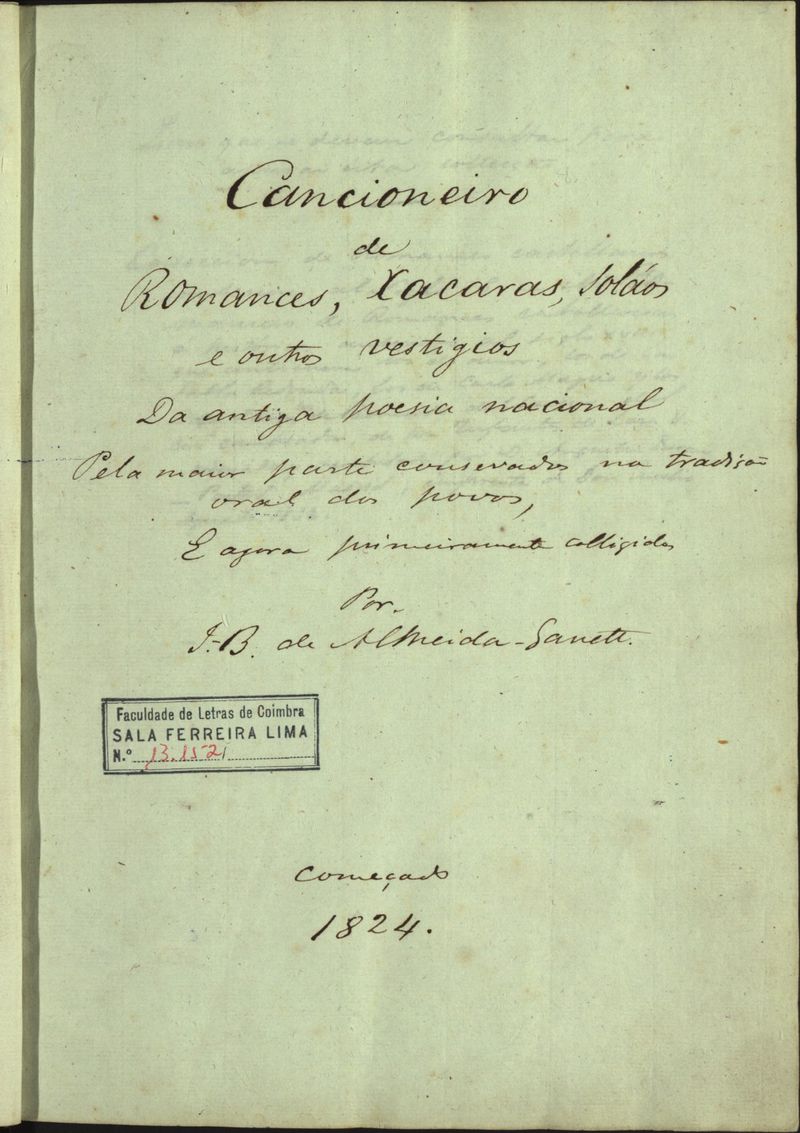 Cancioneiro
de
Romances, Xacaras, Soláos
e outros vestigios
Da antiga poesia nacional
Pela maior parte conservados na tradição
oral dos povos,
E agora primeiramente colligidos
Por.
J.-B. de Almeida-Garrett.
Faculdade de Letras de Coimbra
SALA FERREIRA LIMA
N.º 13.152
começado
1824.